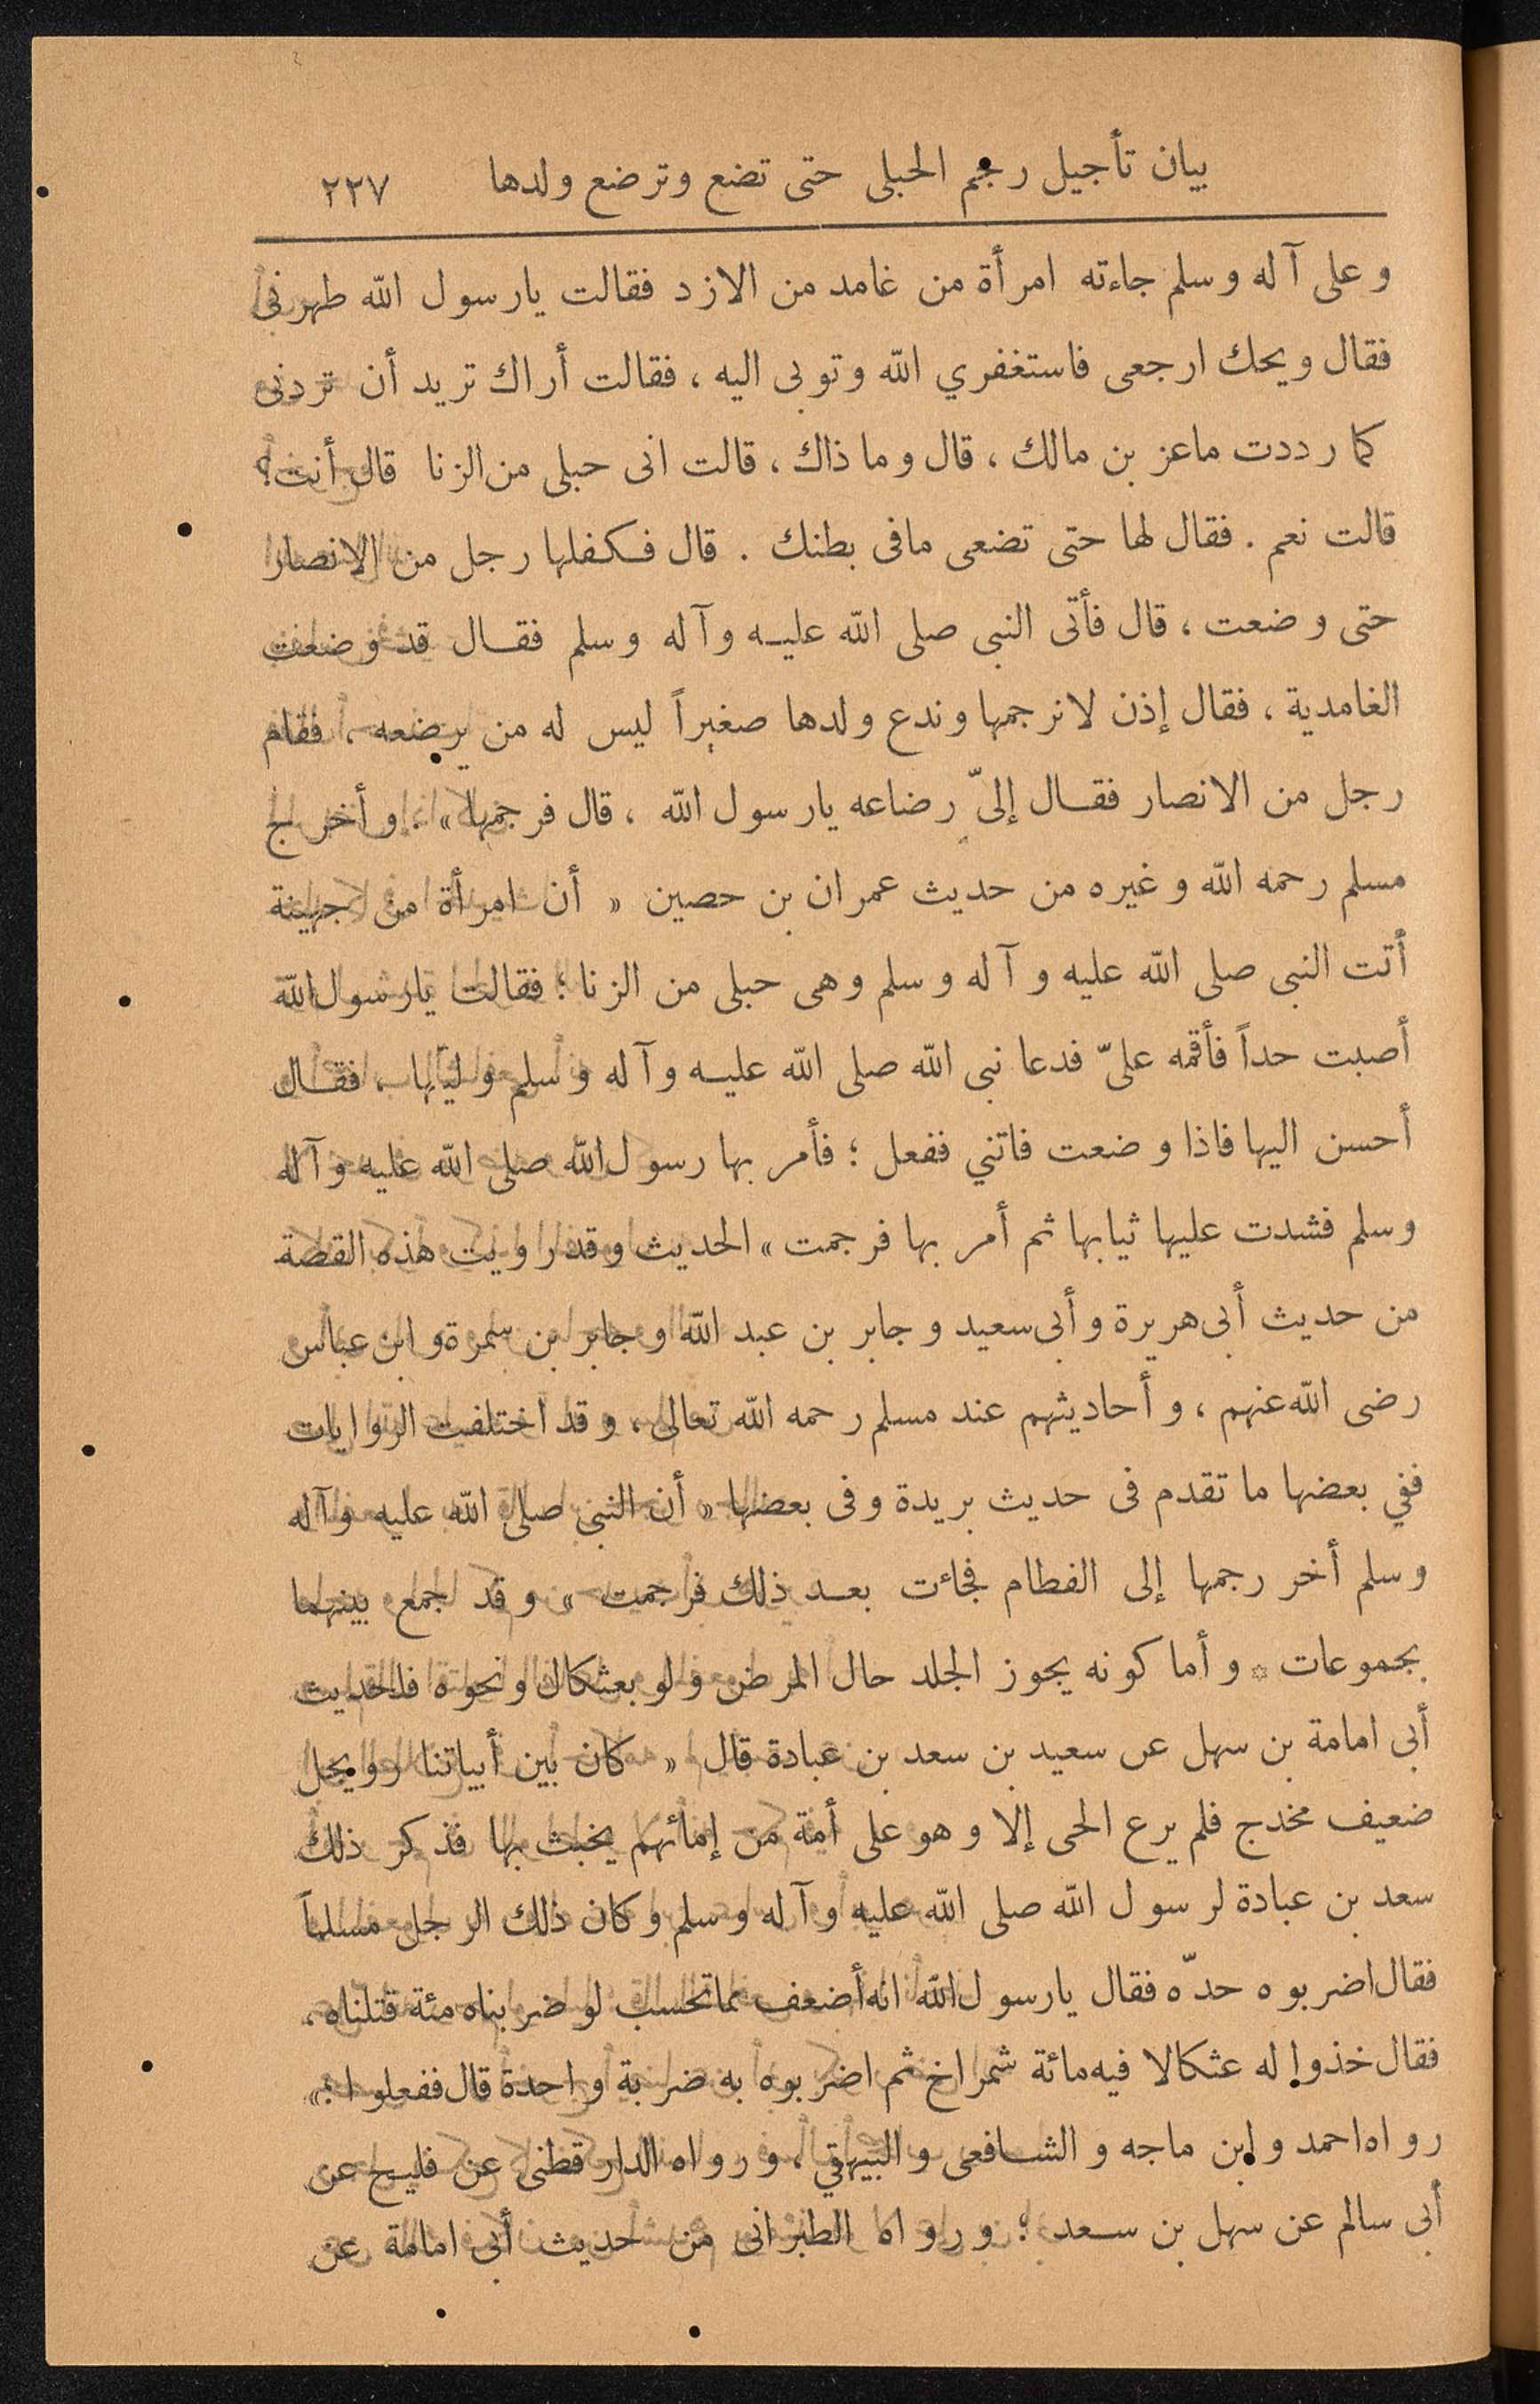 بيان تأجيل رجم الحبلى حتى تضع وترضع ولدها ٢٢٧
وعلى آله وسلم جاءته امرأة من غامد من الازد فقالت يارسول الله طهرنى
فقال ويحك ارجعى فاستغفري الله وتوبى اليه ، فقالت أراك تريد أن تردنى
كما رددت ماعز بن مالك ، قال وما ذاك ، قالت انى حبلى من الزنا قال أنت؟
قالت نعم . فقال لها حتى تضعى مافى بطنك . قال فكفلها رجل من الانصار
حتى وضعت ، قال فأتى النبى صلى الله عليه وآله وسلم فقال قد وضعت
الغامدية ، فقال إذن لانرجمها وندع ولدها صغيراً ليس له من يرضعه ، فقام
رجل من الانصار فقال إلىّ رضاعه يارسول الله ، قال فرجمها » . وأخرج
مسلم رحمه الله وغيره من حديث عمران بن حصين « أن امرأة من جهينة
أتت النبى صلى الله عليه وآله وسلم وهى حبلى من الزنا ؛ فقالت يارسول الله
أصبت حداً فأقمه علىّ فدعا نبى الله صلى الله عليه وآله وسلم وليّها ، فقال
أحسن اليها فاذا وضعت فاتني ففعل ؛ فأمر بها رسول الله صلى الله عليه وآله
وسلم فشدت عليها ثيابها ثم أمر بها فرجمت » الحديث وقد رويت هذه القصة
من حديث أبى هريرة وأبى سعيد وجابر بن عبد الله وجابر بن سمرة وابن عباس
رضى الله عنهم ، وأحاديثهم عند مسلم رحمه الله تعالى ، وقد اختلفت الروايات
ففي بعضها ما تقدم فى حديث بريدة وفى بعضها « أن النبى صلى الله عليه وآله
وسلم أخر رجمها إلى الفطام فجاءت بعد ذلك فرجمت » وقد جمع بينهما
بجموعات * وأما كونه يجوز الجلد حال المرض ولو بعثكال ونحوه فلحديث
أبى امامة بن سهل عن سعيد بن سعد بن عبادة قال « كان بين أبياتنا رويجل
ضعيف مخدج فلم يرع الحى إلا وهو على أمة من إمائهم يخبث بها فذكر ذلك
سعد بن عبادة لرسول الله صلى الله عليه وآله وسلم وكان ذلك الرجل مسلماً
فقال اضربوه حدّه فقال يارسول الله انه أضعف مما تحسب لو ضربناه مئة قتلناه ،
فقال خذوا له عثكالا فيه مائة شمراخ ثم اضربوه به ضربة واحدة قال ففعلوا »
رواه احمد وابن ماجه والشافعى والبيهقي ، ورواه الدارقطنى عن فليح عن
أبى سالم عن سهل بن سعد ؛ ورواه الطبرانى من حديث أبى امامة عن